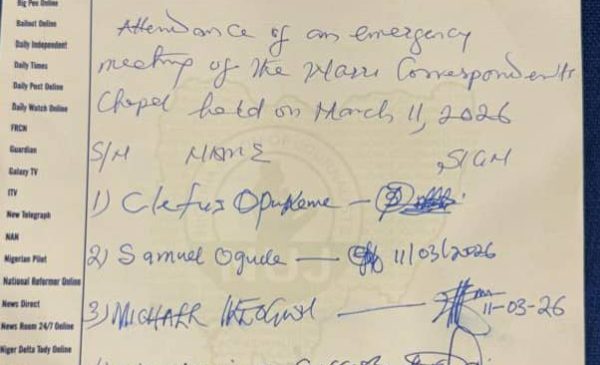 Big Pen Online
Bailout Online
Daily Independent
Daily Times
Daily Post Online
Daily Watch Online
FRCN
Guardian
Galaxy TV
ITV
New Telegraph
NAN
Nigerian Pilot
National Reformer Online
News Direct
News Room 24/7 Online
Niger Delta Tody Online
Attendance of an emergency
meeting of the Warri Correspondents
Chapel held on March 11, 2026
S/N NAME SIGN
1) Cletus Opukeme —
2) Samuel Ogude — 11/03/2026
3) MICHAEL — 11-03-26